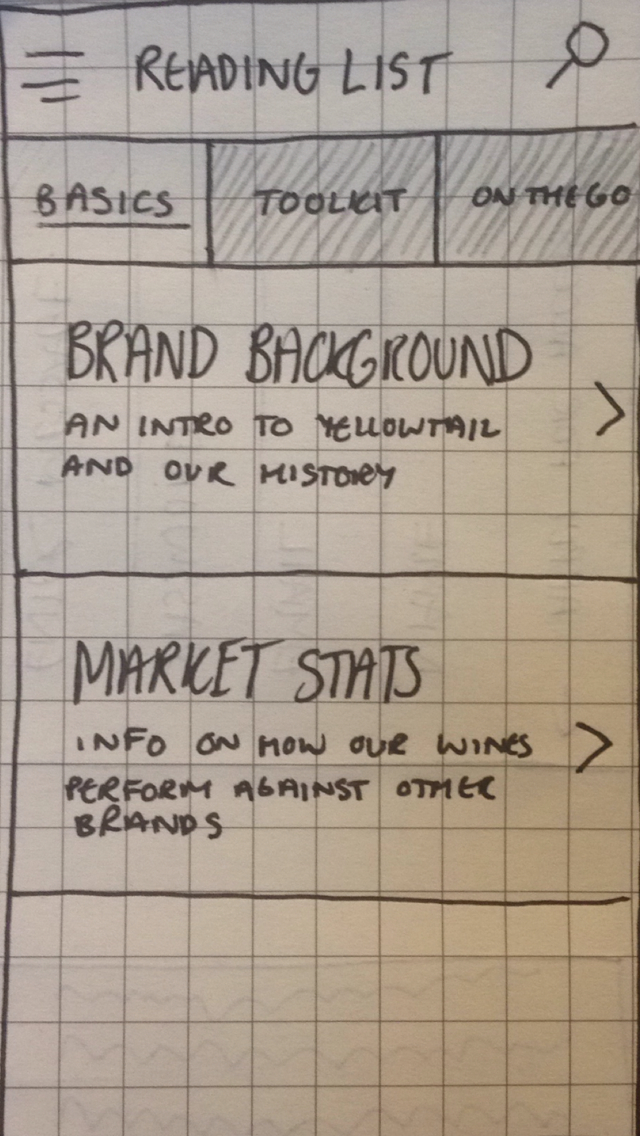 READING LIST
BASICS TOOLKIT ON THE GO
BRAND BACKGROUND
AN INTRO TO YELLOWTAIL
AND OUR HISTORY
MARKET STATS
INFO ON HOW OUR WINES
PERFORM AGAINST OTHER
BRANDS